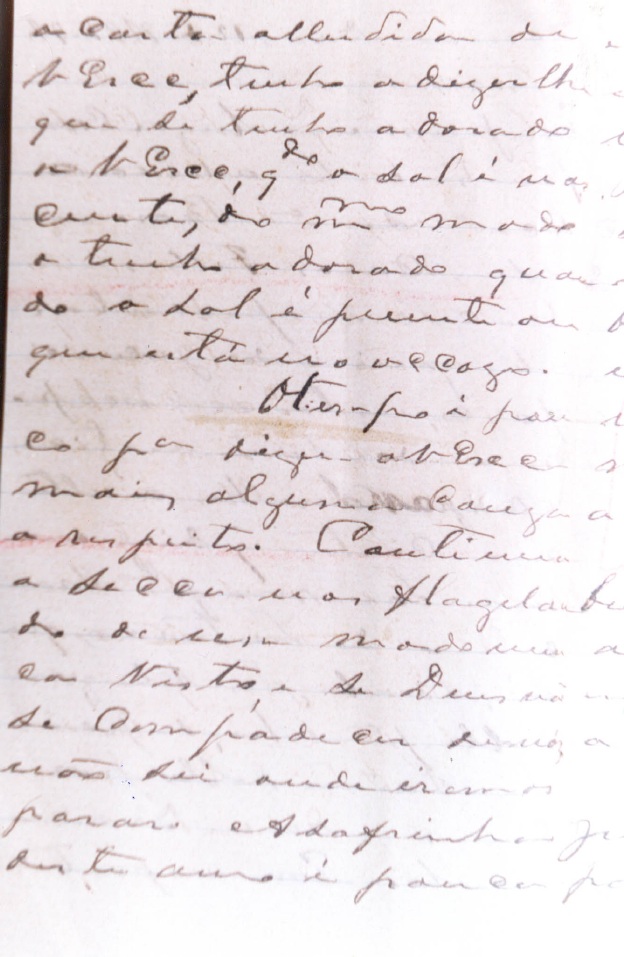 a carta alludida de
V Exce, tenho a dizer lhe
que si tenho adorado
a V Exce, qdo o sol é nas
cente, do mmo modo
o tenho adorado quan
do o sol é poente ou
que está no occazo.
O tempo é pou
co pa dizer a V Exce
mais alguma couza a
respeito. Continua
a secca nos flagelan
do de um modo nun
ca visto, e se Deus não
se compadecer de nós,
não sei onde iremos
parar. A safrinha
deste anno é pouca